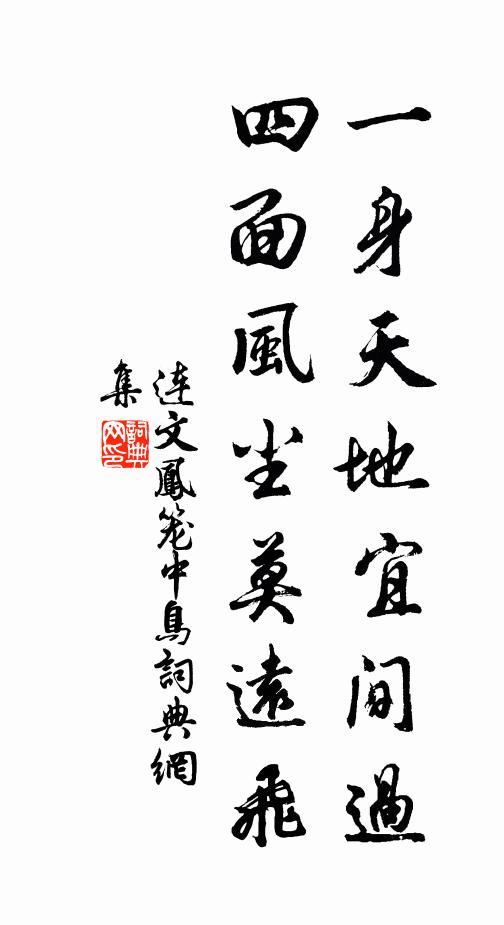 一身天地宜間過
四面風尘莫遠飛
連文鳳笼中鳥詞典網
集
詞典
网印